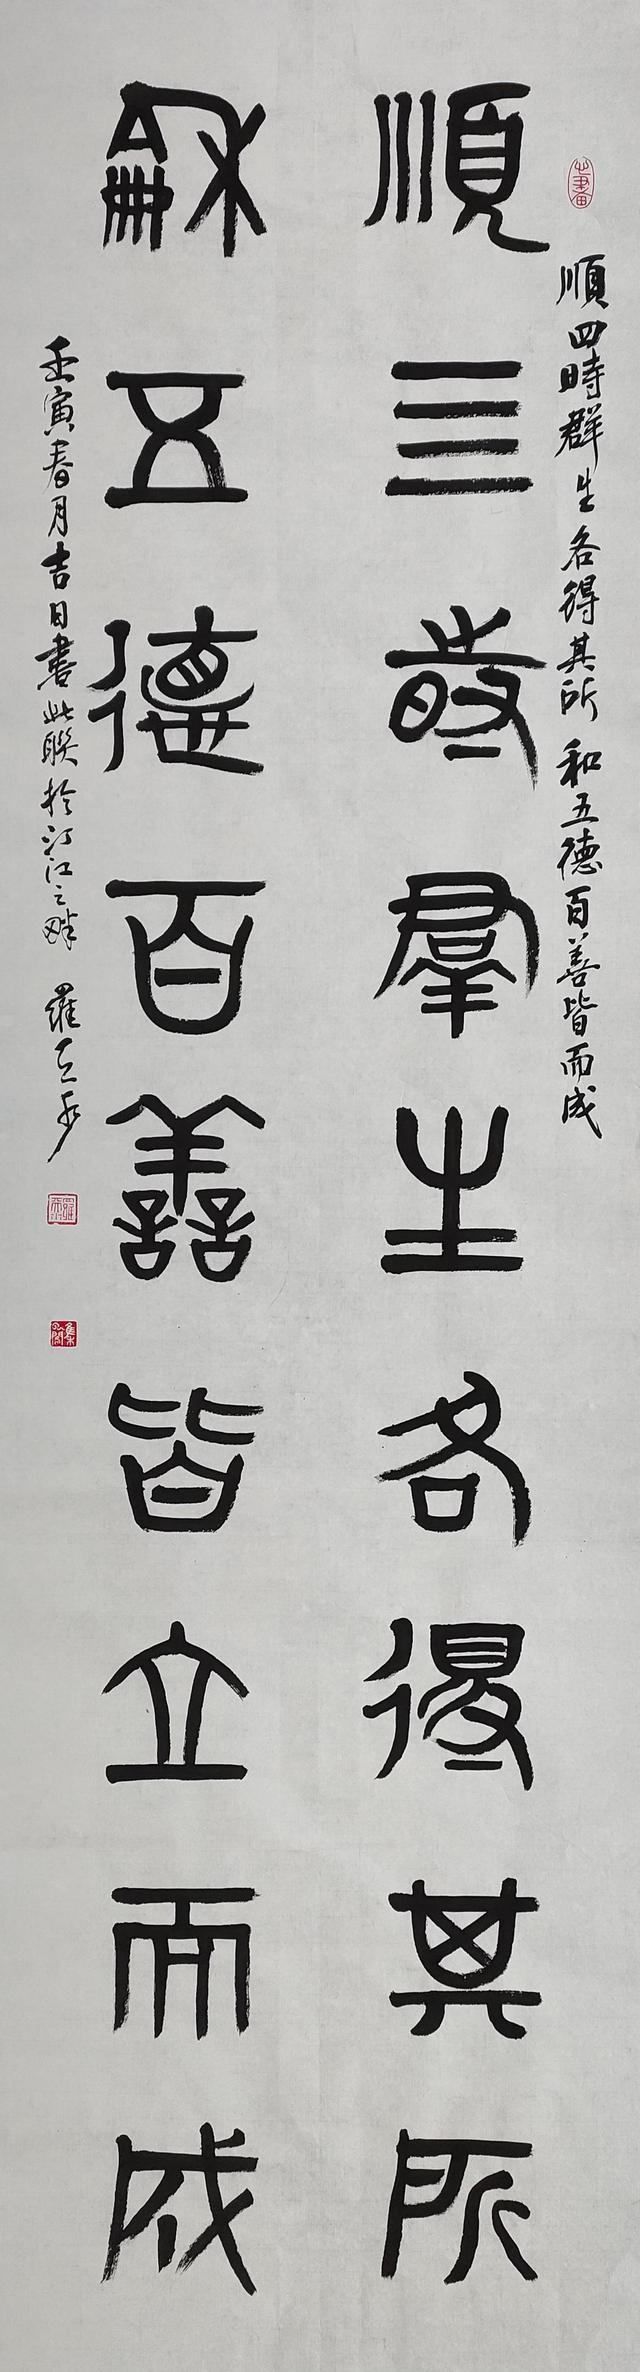 順四時群生各得其所 和五德百善皆而成
順亖時羣生各得其所
龢五德百譱皆立而成
壬寅春月吉日書此聯於汀江之畔 羅